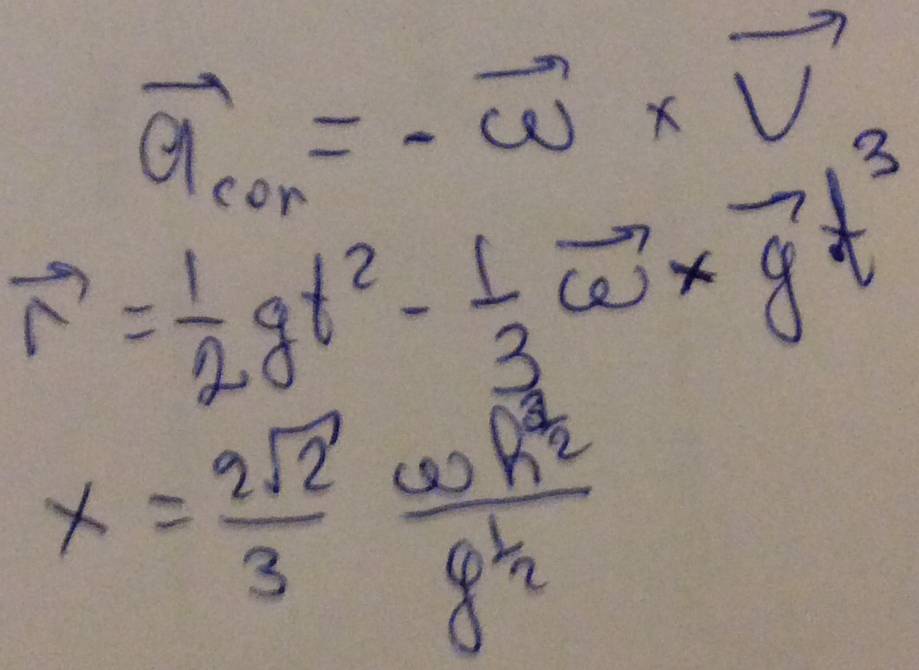 $\vec{a}_{cor} = - \vec{\omega} \times \vec{V}$
$\vec{r} = \frac{1}{2} g t^2 - \frac{1}{3} \vec{\omega} \times \vec{g} t^3$
$x = \frac{2\sqrt{2}}{3} \frac{\omega h^{\frac{3}{2}}}{g^{\frac{1}{2}}}$